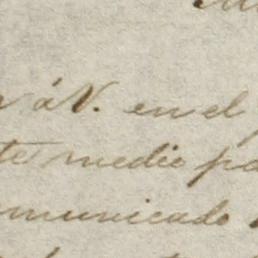 á V. en el
te medio pa
omunicado